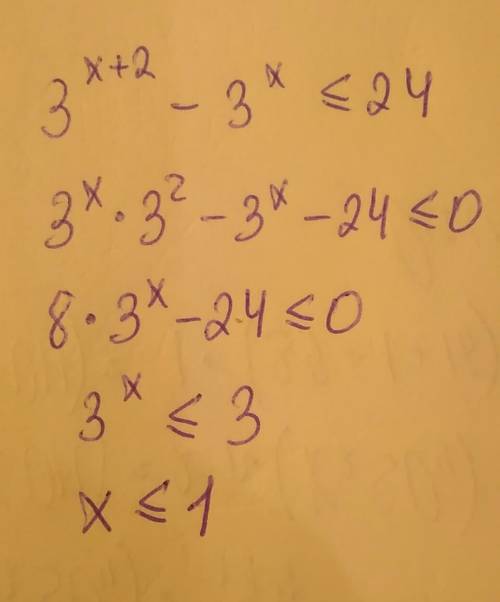 3^{x+2} - 3^x ≤ 24
3^x · 3^2 - 3^x - 24 ≤ 0
8 · 3^x - 24 ≤ 0
3^x ≤ 3
x ≤ 1